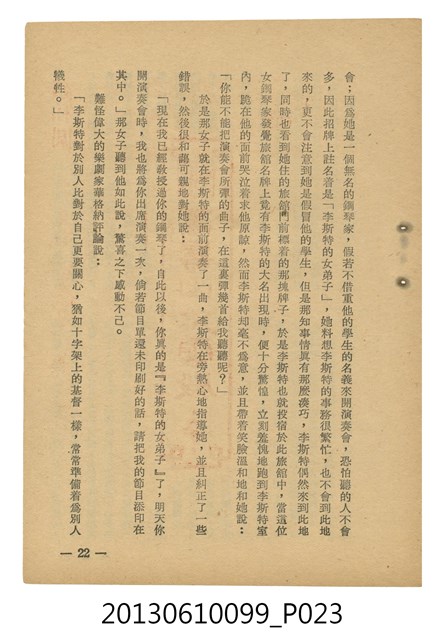 會；因為她是一個無名的鋼琴家，假若不借重他的學生的名義來開演奏會，恐怕聽的人不會
多，因此招牌上註名着是「李斯特的女弟子」，她料想李斯特的事務很繁忙，也不會到此地
來的，更不會注意到她是假冒他的學生，但是那知事情眞有那麼湊巧，李斯特偶然來到此地
了，同時也看到她住的旅館門前標着的那塊牌子，於是李斯特也就投宿於此旅館中，當這位
女鋼琴家發覺旅館名牌上竟有李斯特的大名出現時，便十分驚惶，立刻羞愧地跑到李斯特室
內，跪在他的面前哭泣着求他原諒，然而李斯特却毫不爲意，並且帶着笑臉溫和地和她說：
「你能不能把演奏會所彈的曲子，在這裏彈幾首給我聽聽呢？」
於是那女子就在李斯特的面前演奏了一曲，李斯特在旁熱心地指導她，並且糾正了一些
錯誤，然後很和藹可親地對她說：
「現在我已經敎授過你的鋼琴了，自此以後，你眞的是『李斯特的女弟子』了，明天你
開演奏會時，我也將爲你出席演奏一次，倘若節目單還未印刷好的話，請把我的節目添印在
其中。」那女子聽到他如此說，驚喜之下感動不已。
難怪偉大的樂劇家華格納評論說：
「李斯特對於別人比對於自己更要關心，猶如十字架上的基督一樣，常常準備着爲別人
犧牲。」
— 22 —
20130610099_P023